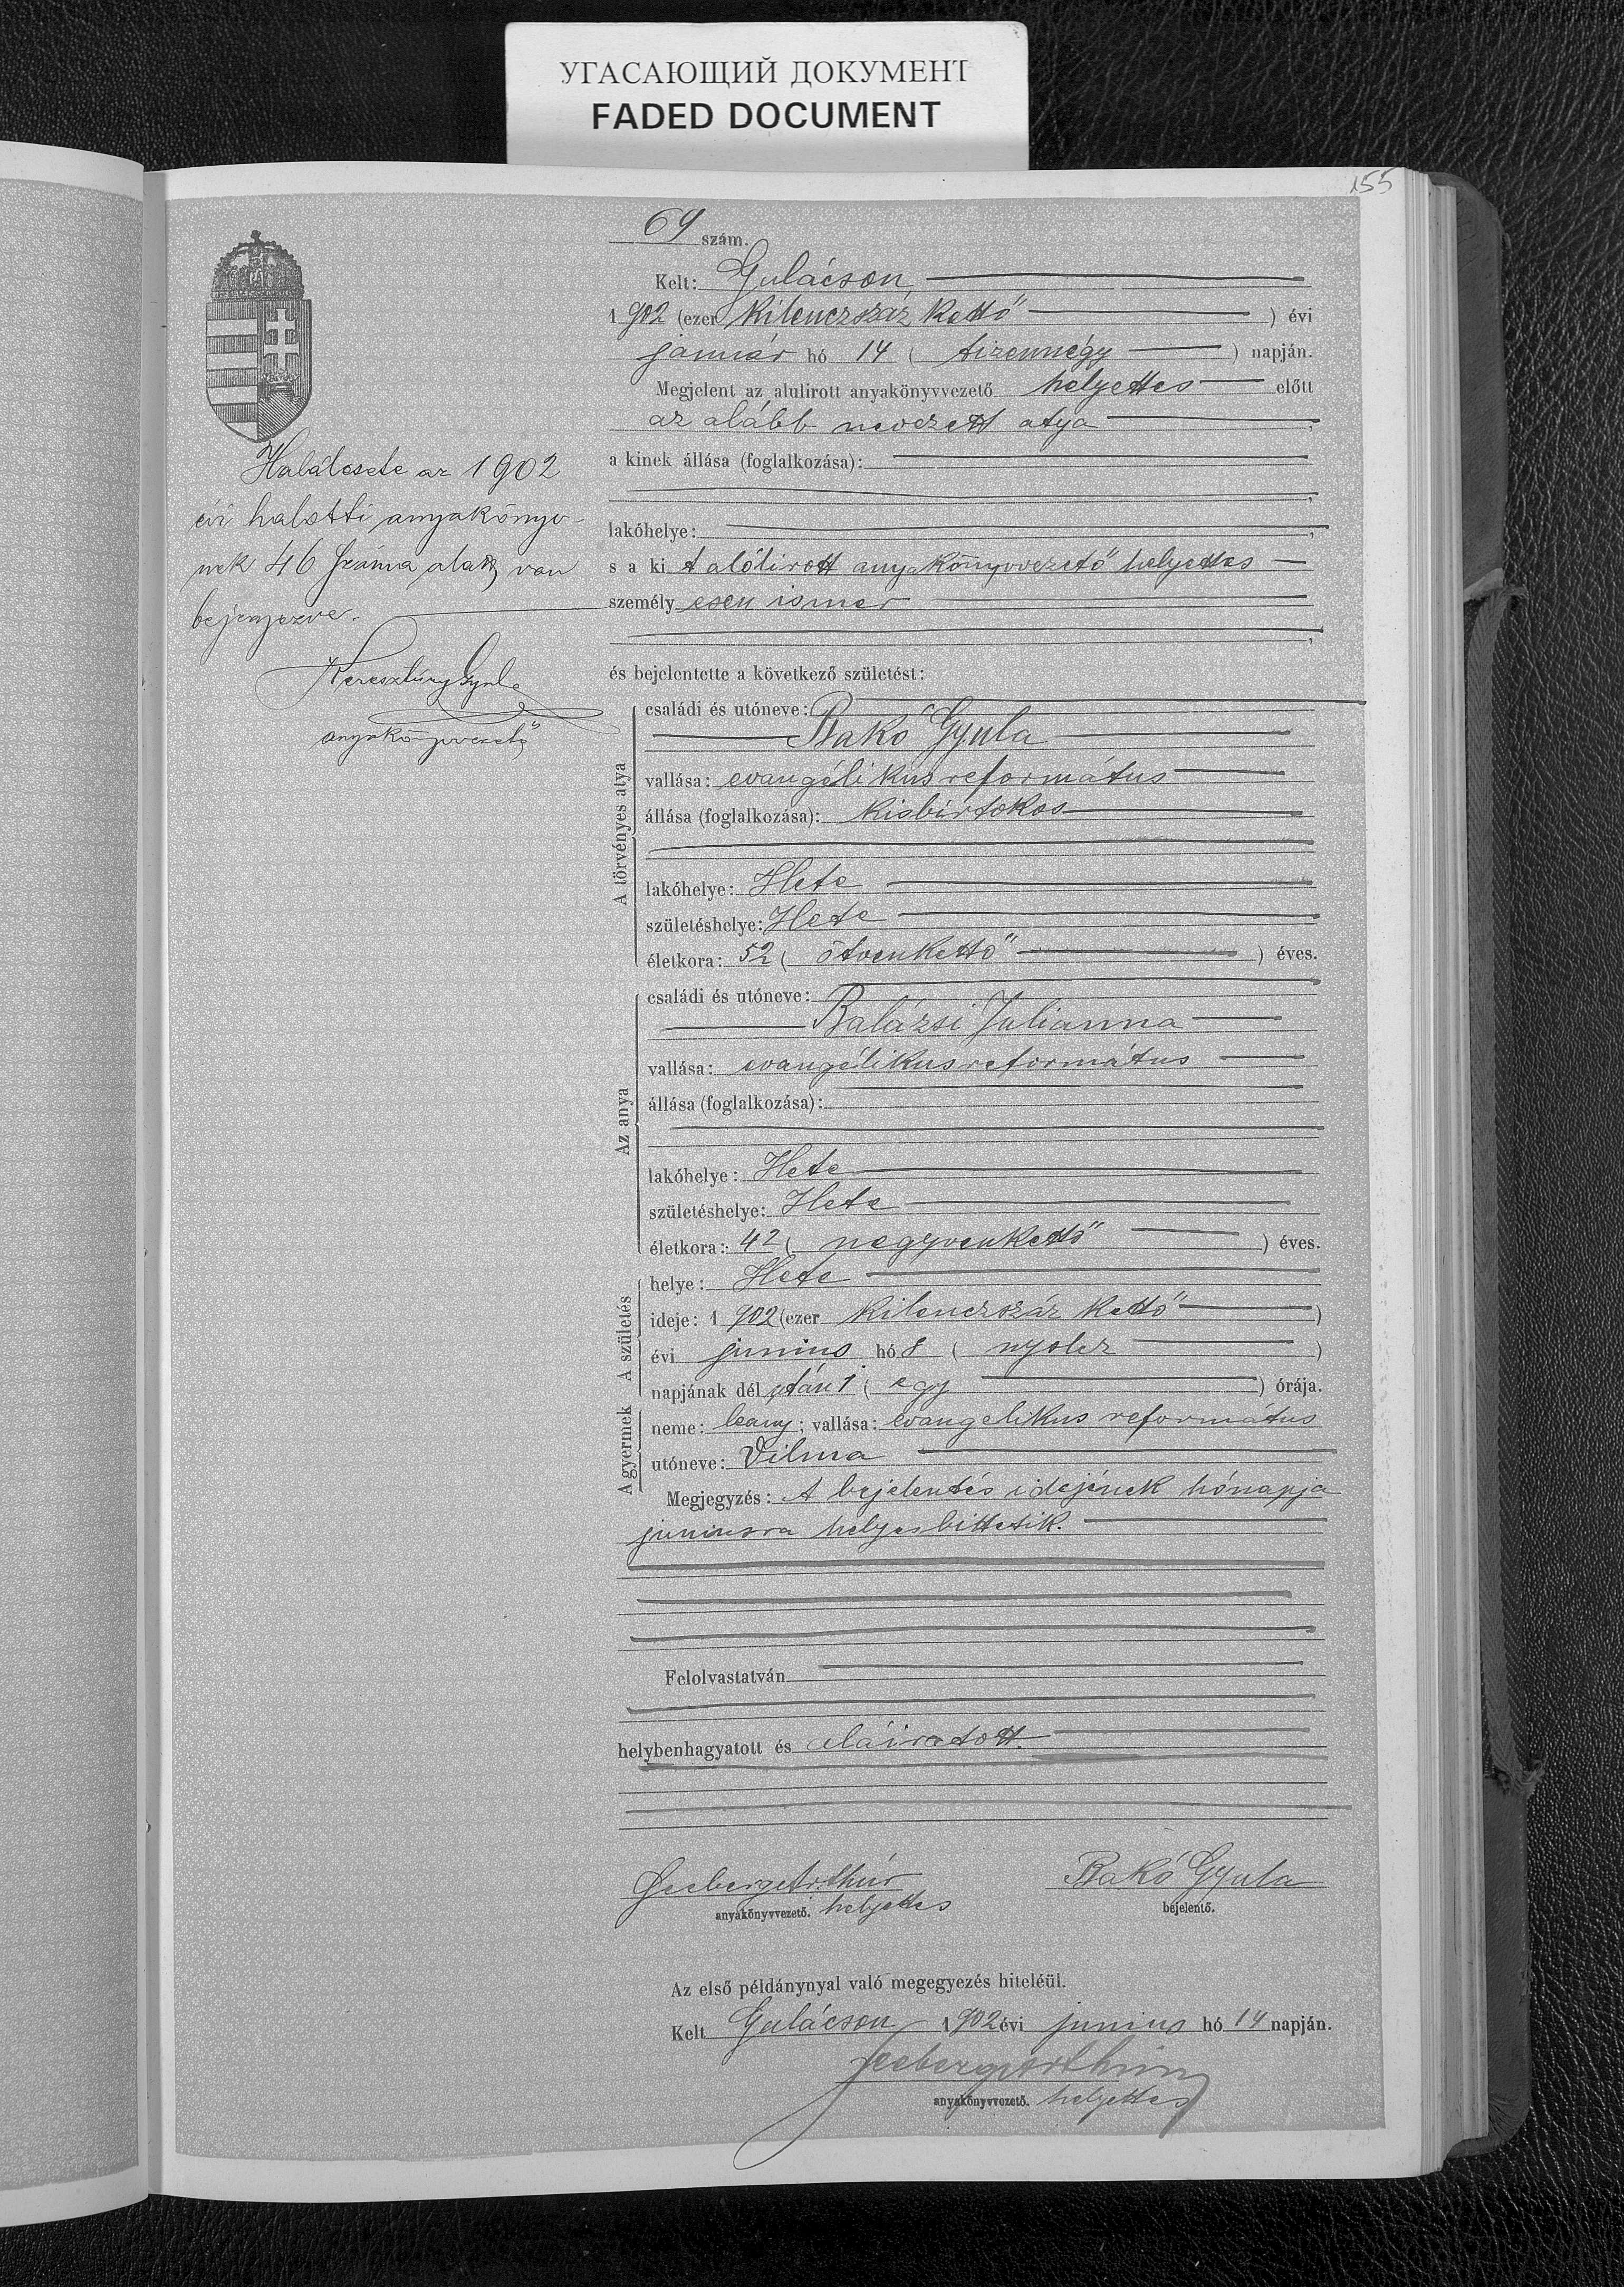 УГАСАЮЩИЙ ДОКУМЕНТ
FADED DOCUMENT
155
69 szám.
Kelt: Gulácson,
1 902 (ezer kilenczszáz kettő) évi
január hó 14 (tizennégy) napján.
Megjelent az alulirott anyakönyvvezető helyettes előtt
az alább nevezett atya,
a kinek állása (foglalkozása):
lakóhelye:
s a ki t alólirott anyakönyvvezető helyettes
személy esen ismer
és bejelentette a következő születést:
A törvényes atya
családi és utóneve:
Bakó Gyula
vallása: evangélikus református
állása (foglalkozása): kisbirtokos
lakóhelye: Hete
születéshelye: Hete
életkora: 52 (ötvenkettő) éves.
Az anya
családi és utóneve:
Balázsi Julianna
vallása: evangélikus református
állása (foglalkozása):
lakóhelye: Hete
születéshelye: Hete
életkora: 42 (negyvenkettő) éves.
A születés
helye: Hete
ideje: 1 902 (ezer kilenczszáz kettő)
évi junius hó 8 (nyolcz)
napjának dél után 1 (egy) órája.
A gyermek
neme: leany; vallása: evangelikus református
utóneve: Vilma
Megjegyzés: A bejelentés idejének hónapja
juniusra helyesbittetik.
Felolvastatván
helybenhagyatott és aláiratott.
Seeberg Arthúr
anyakönyvvezető. helyettes
Bakó Gyula
bejelentő.
Az első példánynyal való megegyezés hiteléül.
Kelt Gulácson 1 902 évi junius hó 14 napján.
Seeberg Arthúr
anyakönyvvezető. helyettes
Halálesete az 1902
évi halotti anyakönyv-
nek 46 száma alatt van
bejegyezve.
Keresztúry Gyula
anyakönyvvezető